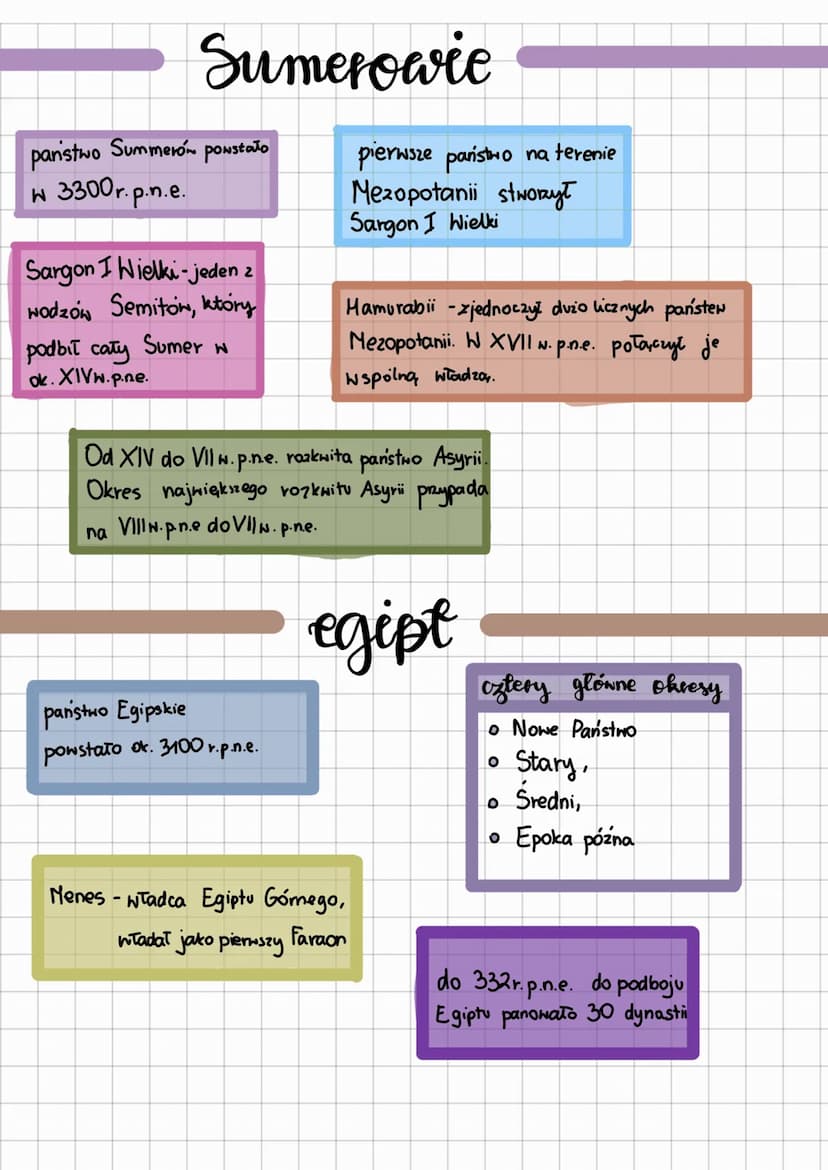 Sumerowie
państwo Summerów powstało
w 3300r. p.n.e.
pierwsze państwo na terenie
Mezopotanii stworzył
Sargon I Wielki
Sargon I Wielki - jeden z
wodzów Semitów, który
podbił cały Sumer w
ok. XIVw.p.ne.
Hamurabii - zjednoczył dużo licznych państew
Mezopotanii. W XVII w. p.n.e. połączył je
wspólną władzą.
Od XIV do VII w. p.n.e. rozkwita państwo Asyrii.
Okres największego rozkwitu Asyrii przypada
na VIII w. p.n.e do VII w. p.n.e.
egipt
państwo Egipskie
powstało ok. 3100 r.p.n.e.
cztery główne okresy
Nowe Państwo
Stary,
Średni,
Epoka późna
Menes - władca Egiptu Górnego,
władał jako pierwszy Faraon
do 332r. p.n.e. do podboju
Egiptu panowało 30 dynastii